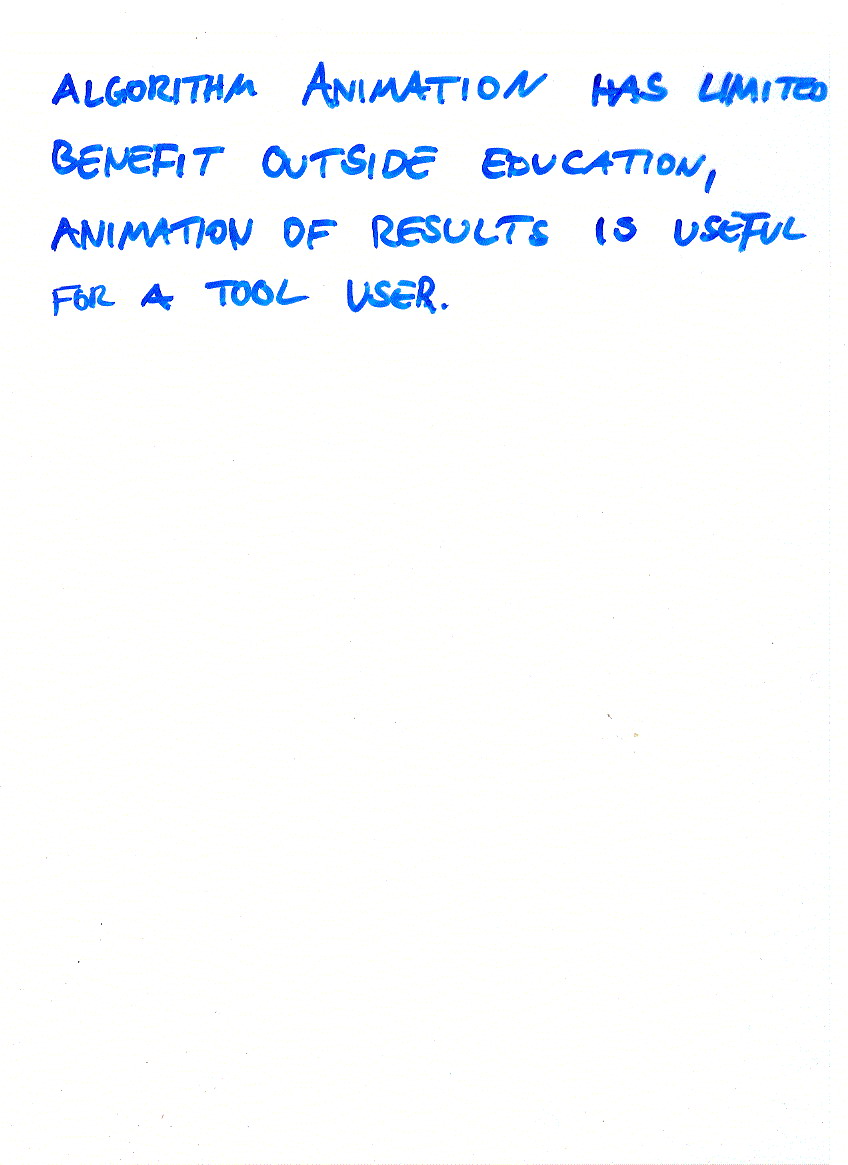 ALGORITHM ANIMATION HAS LIMITED
BENEFIT OUTSIDE EDUCATION,
ANIMATION OF RESULTS IS USEFUL
FOR A TOOL USER.